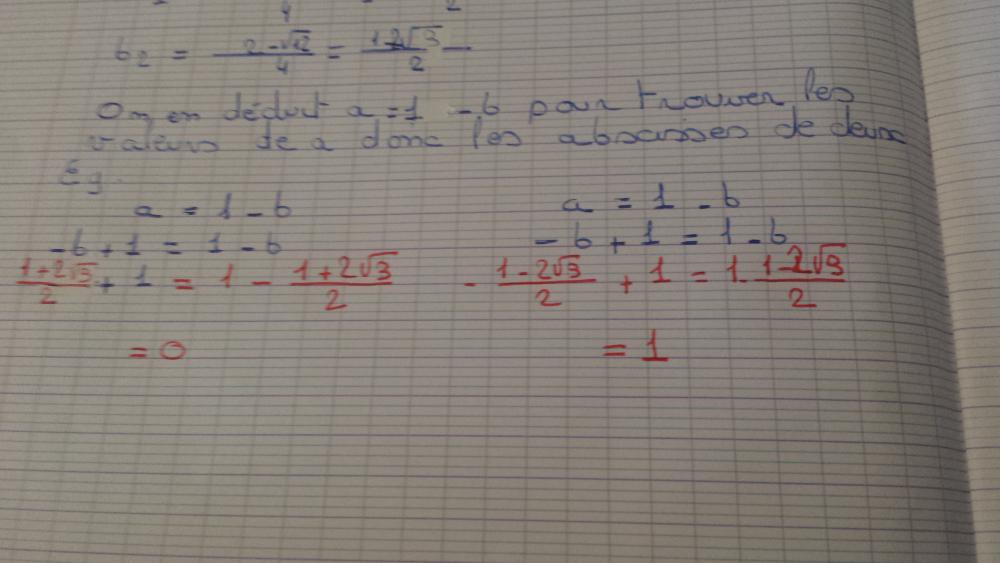 4 2
b2 = 2-√12/4 = 1-2√3/2
On en déduit a = 1 - b pour trouver les
valeurs de a donc les abscisses de deux
Eg.
a = 1 - b a = 1 - b
-b + 1 = 1 - b - b + 1 = 1 - b
1+2√3/2 + 1 = 1 - 1+2√3/2 - 1-2√3/2 + 1 = 1 - 1-2√3/2
= 0 = 1